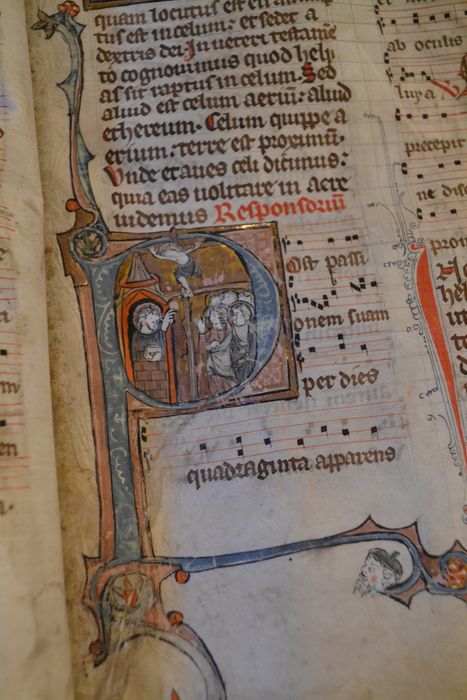 quam locutus est
tus est in celum: et sedet a
dextris dei. In ueteri testamē
to cognouimus quod hely
as sit raptus in celum. Sed
aliud est celum aeriū: aliud
ethereum. Celum quippe a
erium: terre est proximū:
Vnde et aues celi dicimus:
quia eas uolitare in aere
uidemus Responsoriū
Ost passi
onem suam
per dies
quadraginta apparens
ab oculis
luya
precepit
ne dis